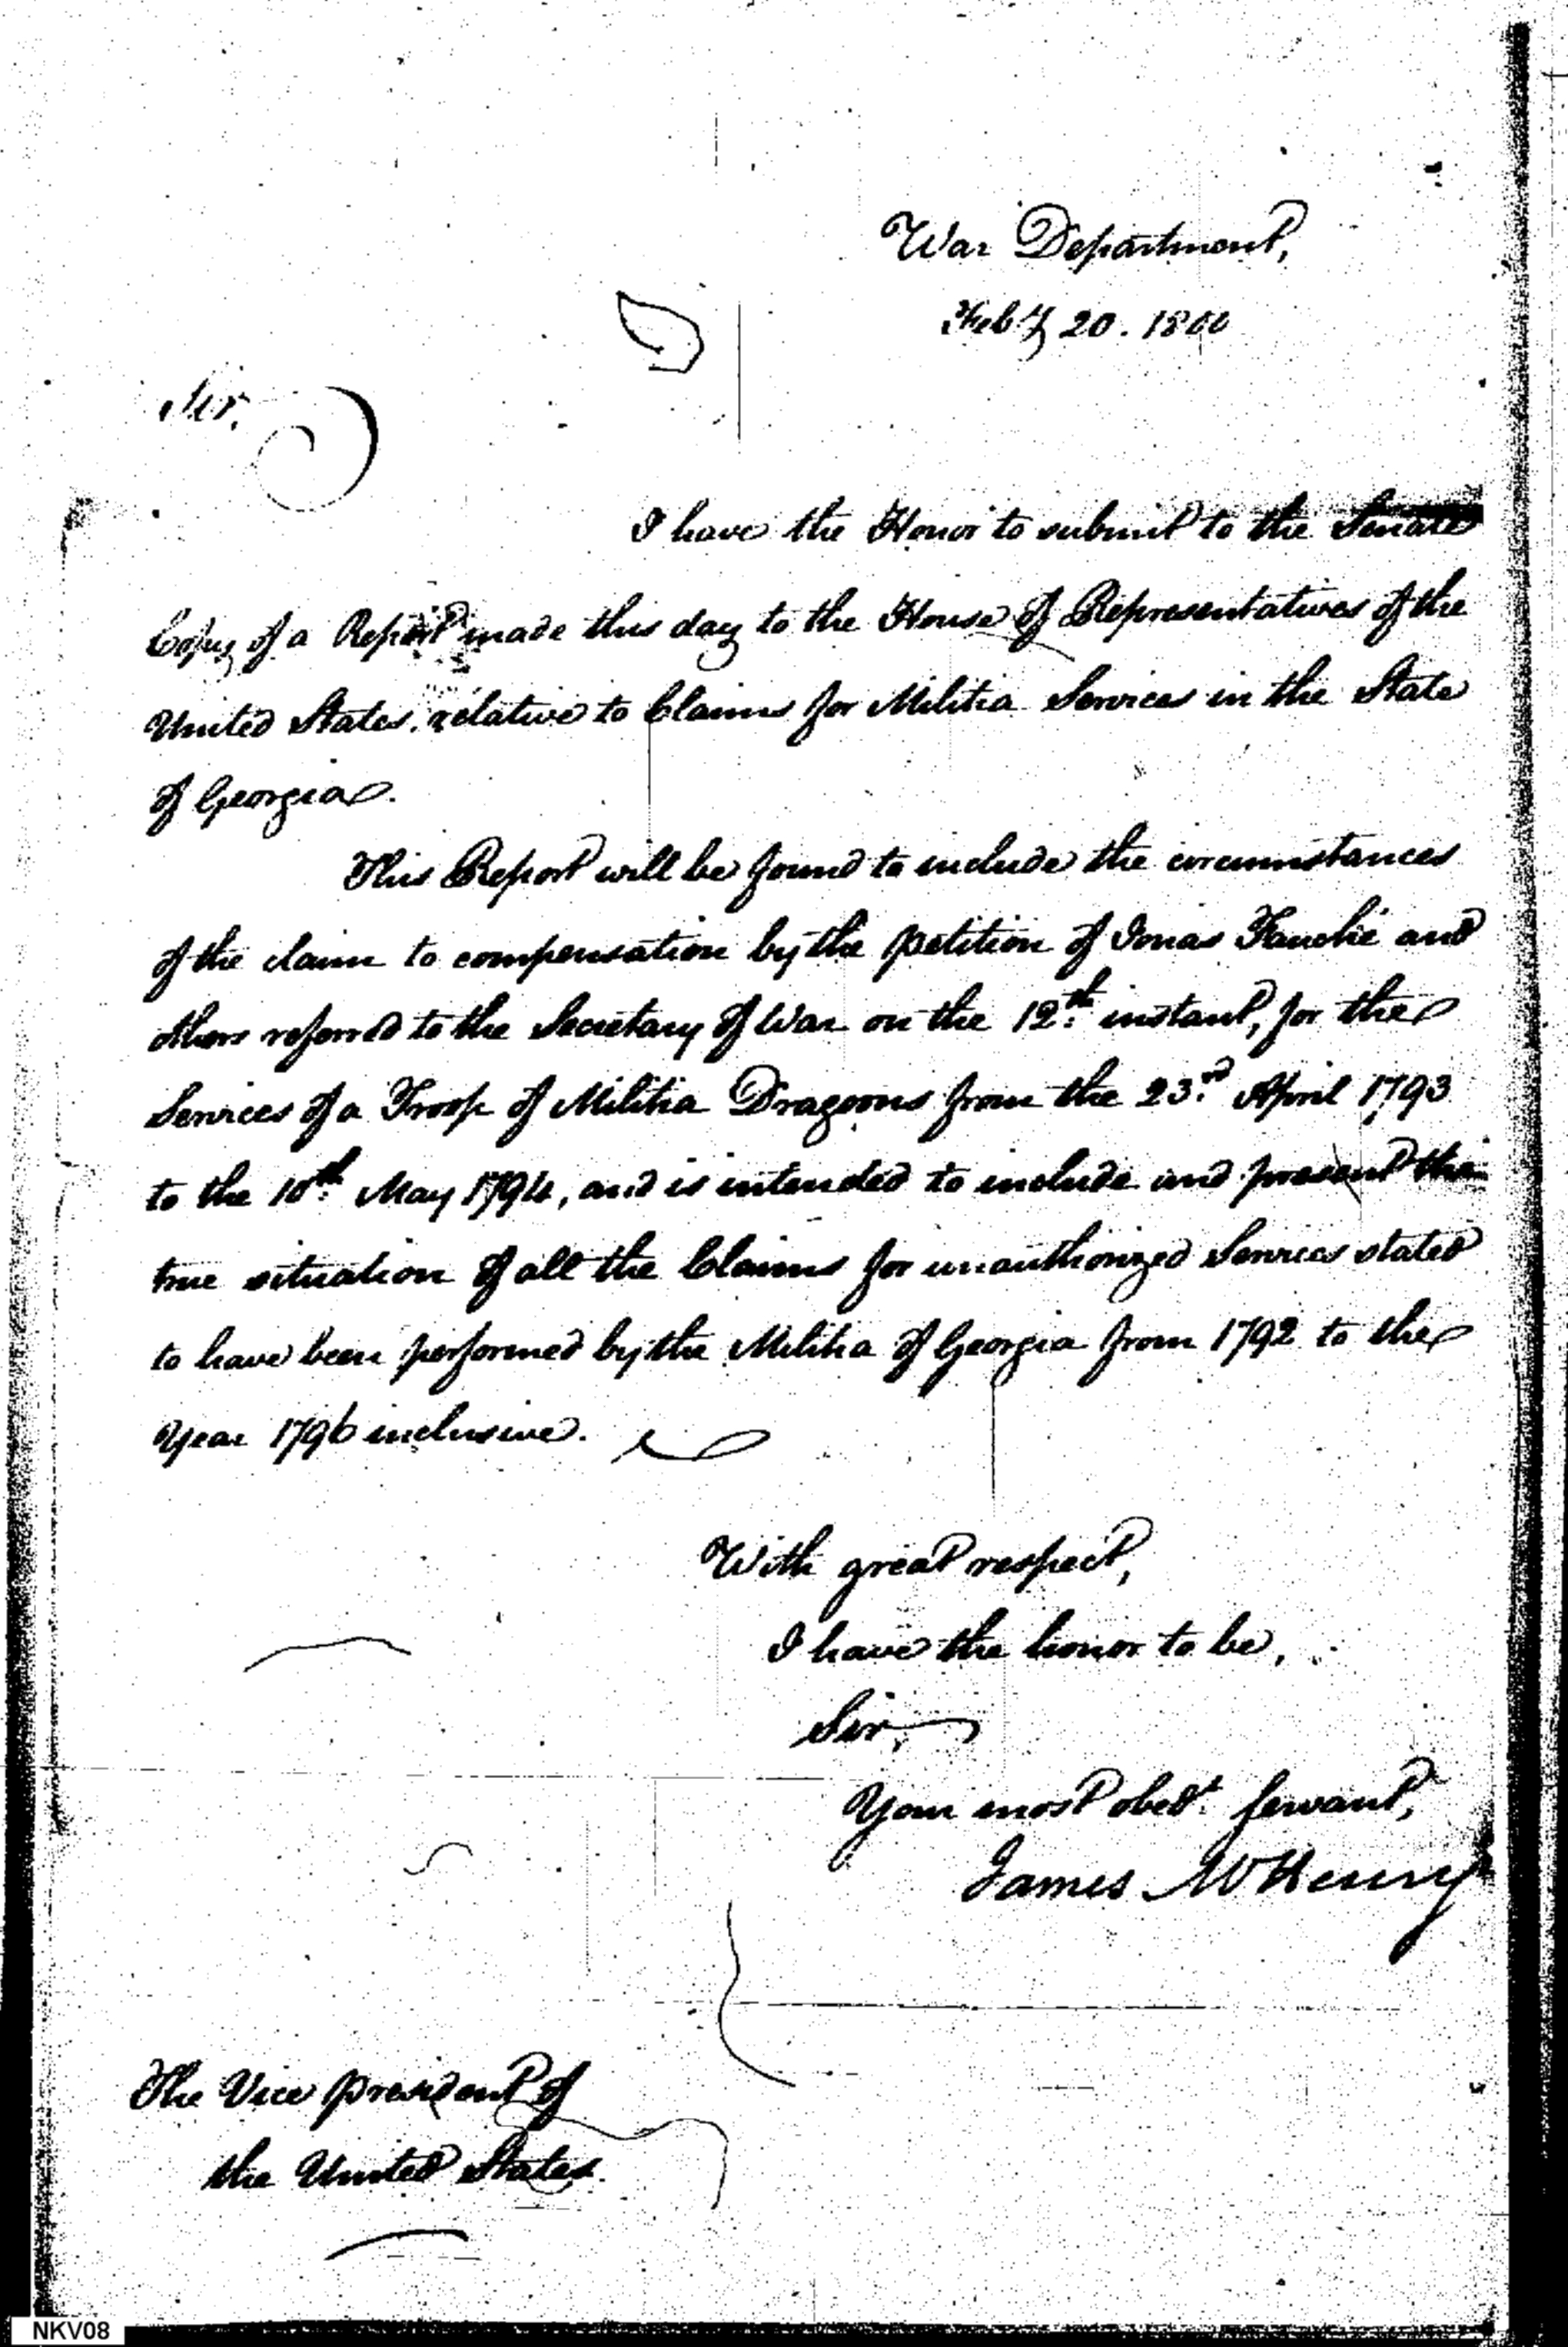 War Department,
Feby 20. 1800
Sir.
I have the Honor to submit to the Senate
Copy of a Report made this day to the House of Representatives of the
United States, relative to Claims for Militia Services in the State
of Georgia.
This Report will be found to include the circumstances
of the claim to compensation by the petition of Jonas Fauche and
others referred to the Secretary of War on the 12th. instant, for the
Services of a Troop of Militia Dragoons from the 23.rd April 1793
to the 10th. May 1794, and is intended to include and present the
true situation of all the Claims for unauthorized Services stated
to have been performed by the Militia of Georgia from 1792 to the
Year 1796 inclusive.
With great respect,
I have the honor to be,
Sir,
Your most obedt. servant,
James McHenry
The Vice president of
the United States.
NKV08